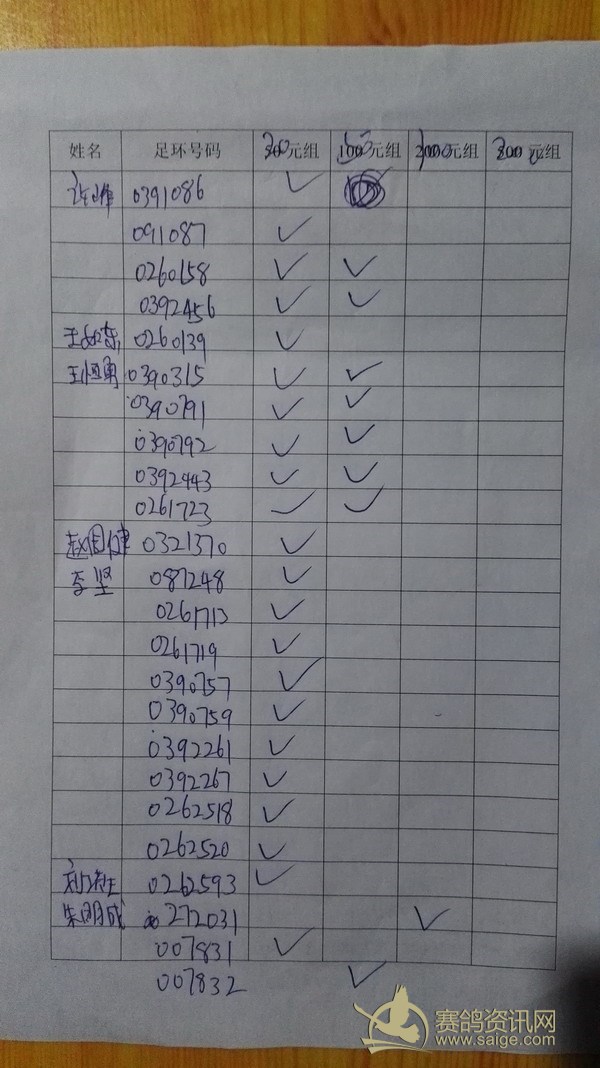 姓名 足环号码 元组 100元组 元组 元组
0391086 ✓
091087 ✓
0260158 ✓ ✓
0392456 ✓ ✓
0260139 ✓
王恒勇 0390315 ✓ ✓
0390791 ✓ ✓
0390792 ✓ ✓
0392443 ✓ ✓
0261723 ✓ ✓
赵国健 0321370 ✓
李坚 087248 ✓
0261713 ✓
0261719 ✓
0390757 ✓
0390759 ✓
0392261 ✓
0392267 ✓
0262518 ✓
0262520 ✓
0262593 ✓
朱明成 272031 ✓
007831 ✓
007832 ✓
赛鸽资讯网
www.saige.com